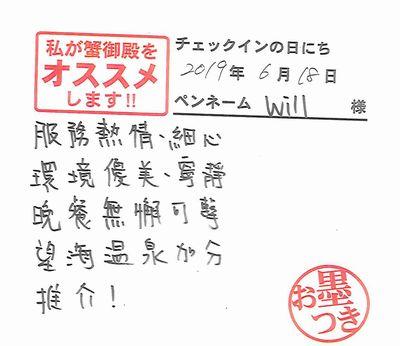 私が蟹御殿を
オススメ
します!!
チェックインの日にち
2019年6月18日
ペンネーム Will 様
服務熱情、細心
環境優美、寧靜
晚餐無懈可擊
望海溫泉加分
推介!
お墨つき